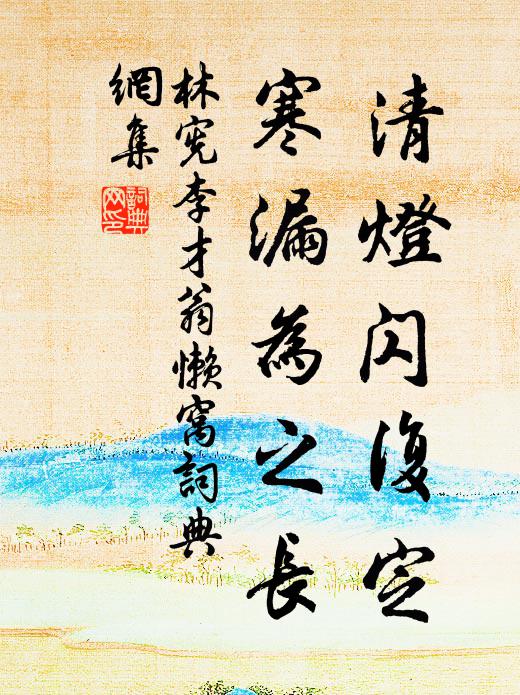 清燈閃復定
寒漏為之長
林宪李才翁懶窩詞典
網集
詞典
网印